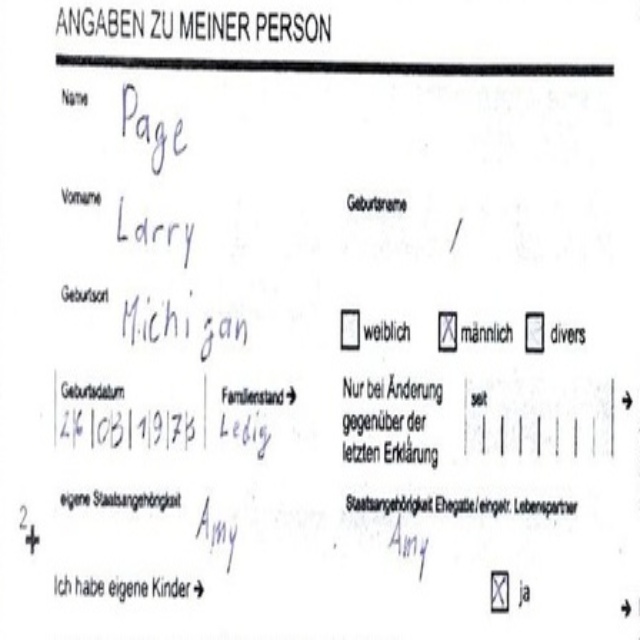 ANGABEN ZU MEINER PERSON
Name Page
Vorname Larry
Geburtsname /
Geburtsort Michigan
weiblich männlich divers
Geburtsdatum 26 03 1973
Familienstand → Ledig
Nur bei Änderung
gegenüber der
letzten Erklärung
seit →
eigene Staatsangehörigkeit Amy
Staatsangehörigkeit Ehegatte/eingetr. Lebenspartner Amy
2
Ich habe eigene Kinder → ja →